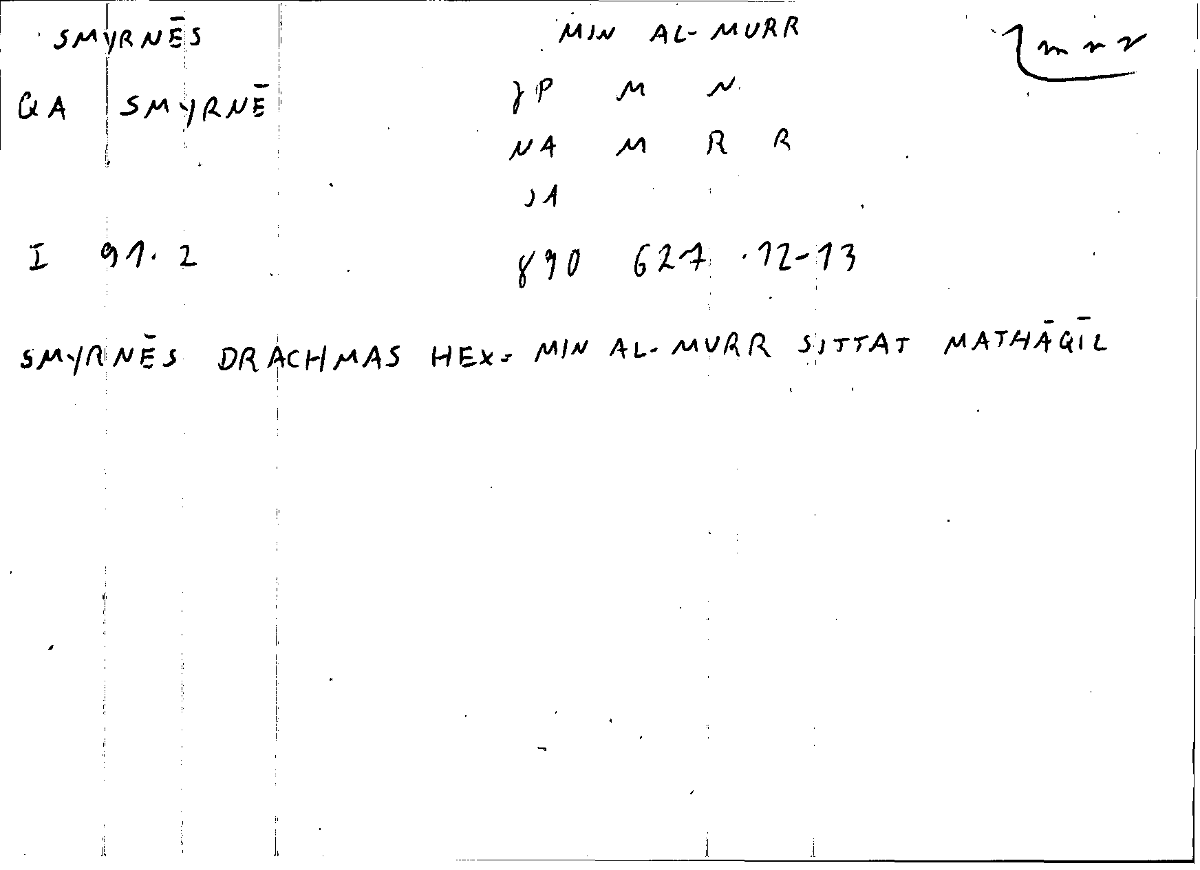 SMYRNĒS MIN AL-MURR mrr
QA SMYRNĒ γP M N
NA M R R
JA
I 91.2 890 627 .12-13
SMYRNĒS DRACHMAS HEX= MIN AL-MURR SITTAT MATHĀQĪL